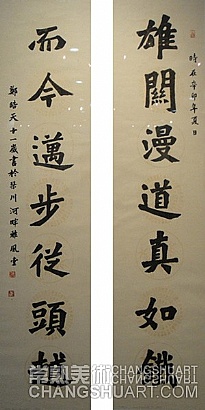 時在辛卯年夏日
雄關漫道真如鐵
而今邁步從頭越
鄭皓天十一歲書於榮川河畔雅風堂
常熟美術
CHANGSHUART